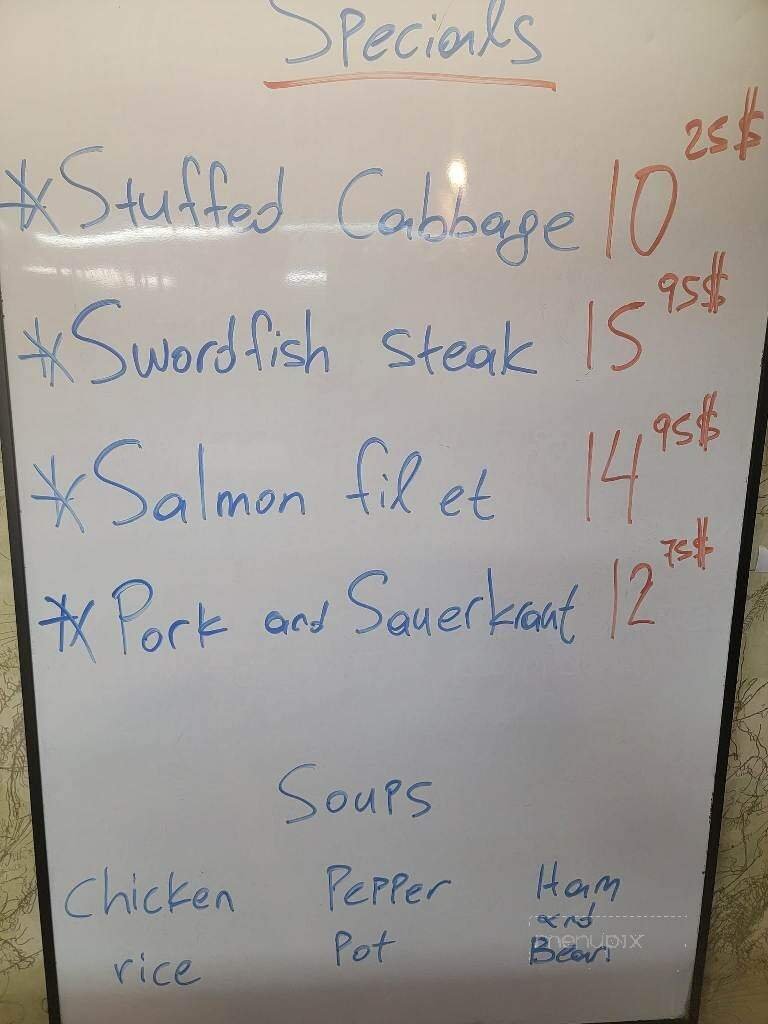 Specials
*Stuffed Cabbage 10 25$
*Swordfish steak 15 95$
*Salmon filet 14 95$
*Pork and Sauerkraut 12 75$
Soups
Chicken Pepper Ham
and
rice Pot Bean
menupix